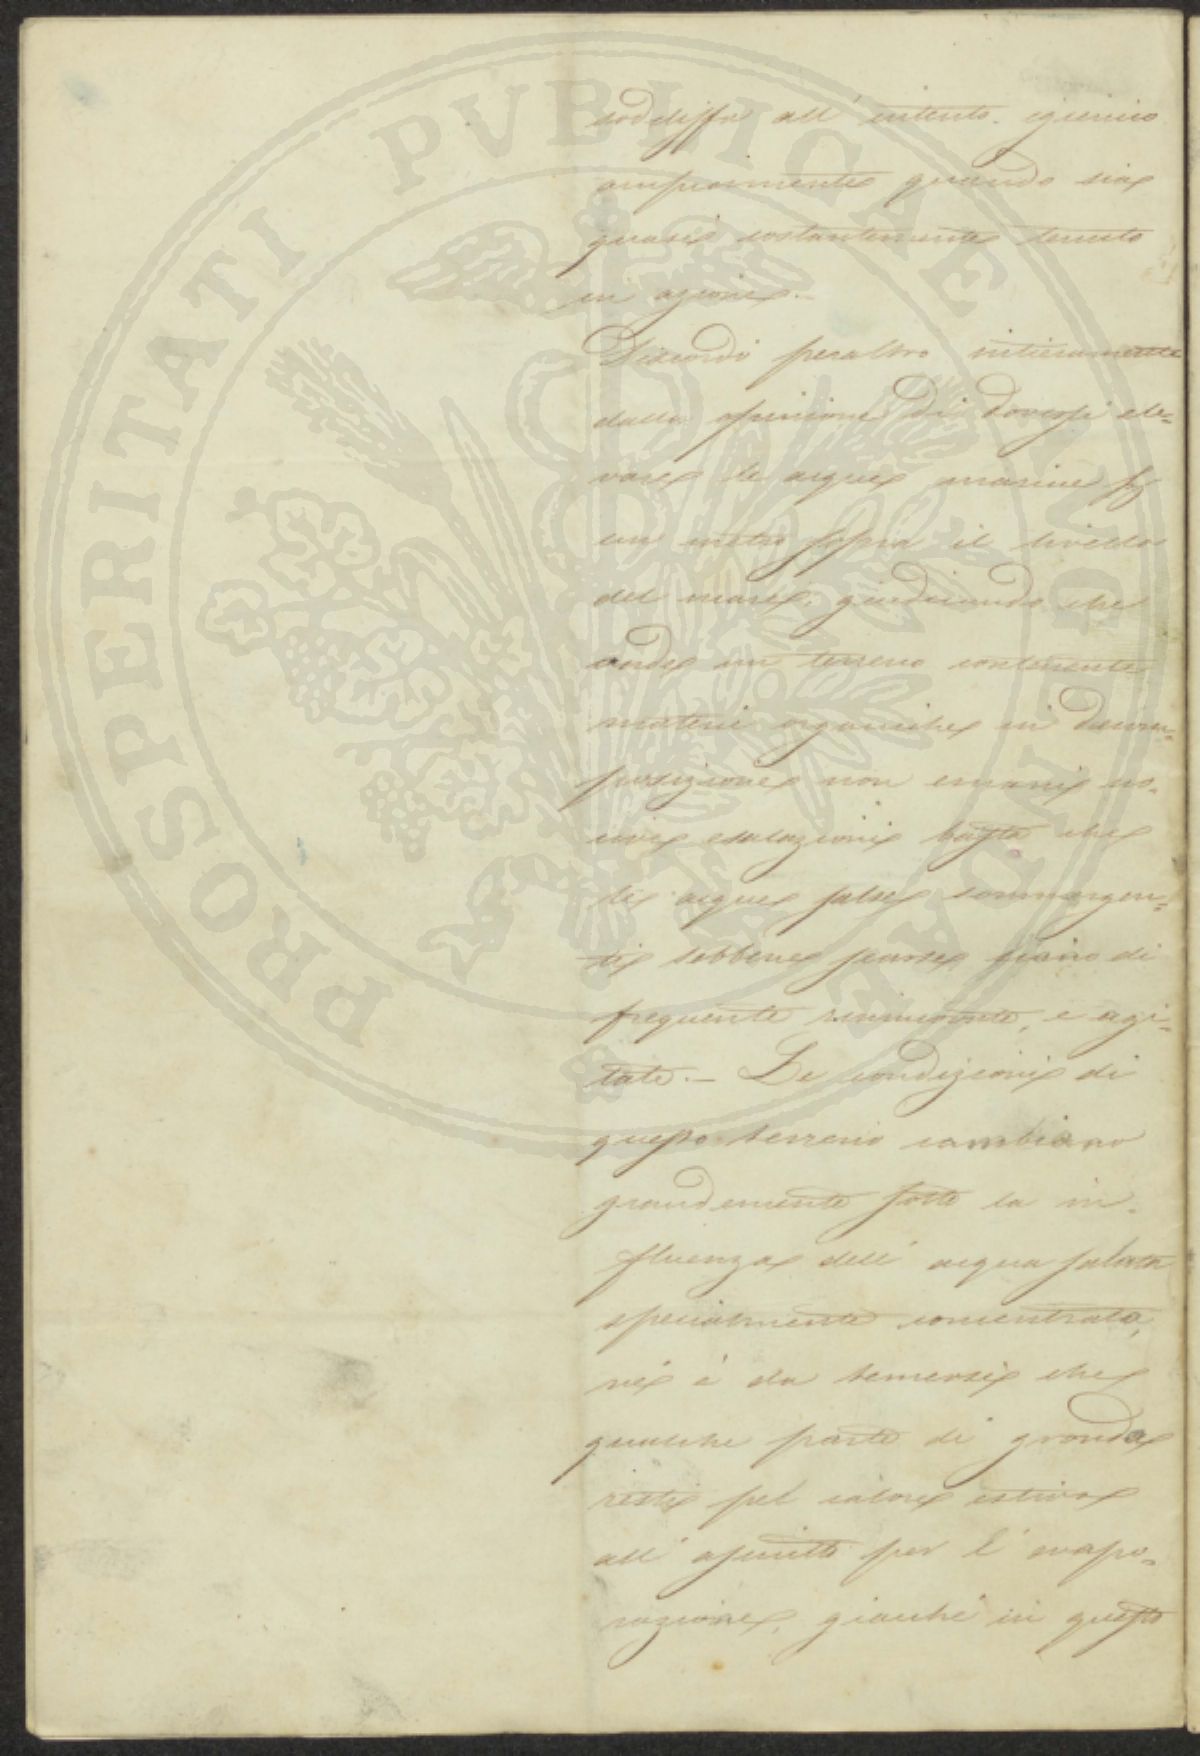 PROSPERITATI PVBLICAE AVGENDAE
soddisfa all' intento igienico
ampiamente quando sia
quasi costantemente tenuto
in azione.—
Discordo peraltro intieramente
dalla opinione di doversi ele=
vare le acque marine p
un metro sopra il livello
del mare, giudicando che
onde un terreno contenente
materie organiche in decom=
posizione non emani no=
cive esalazioni basta che
le acque salse sommergen=
ti sebbene scarse siano di
frequente rinnovate, e agi=
tate.— Le condizioni di
questo terreno cambiano
grandemente sotto la in=
fluenza dell' acqua salata
specialmente concentrata,
nè è da temersi che
qualche parte di gronda
resti pel calore estivo
all' asciutto per l' evapo=
razione, giacchè in questo